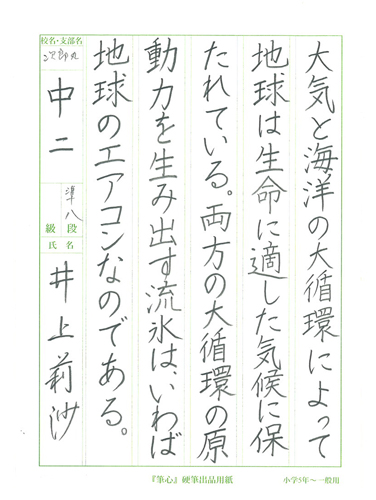 大気と海洋の大循環によって
地球は生命に適した気候に保
たれている。両方の大循環の原
動力を生み出す流氷は、いわば
地球のエアコンなのである。
校名・支部名
次郎丸
中二
準八
級段
氏名
井上莉沙
『筆心』硬筆出品用紙
小学5年～一般用